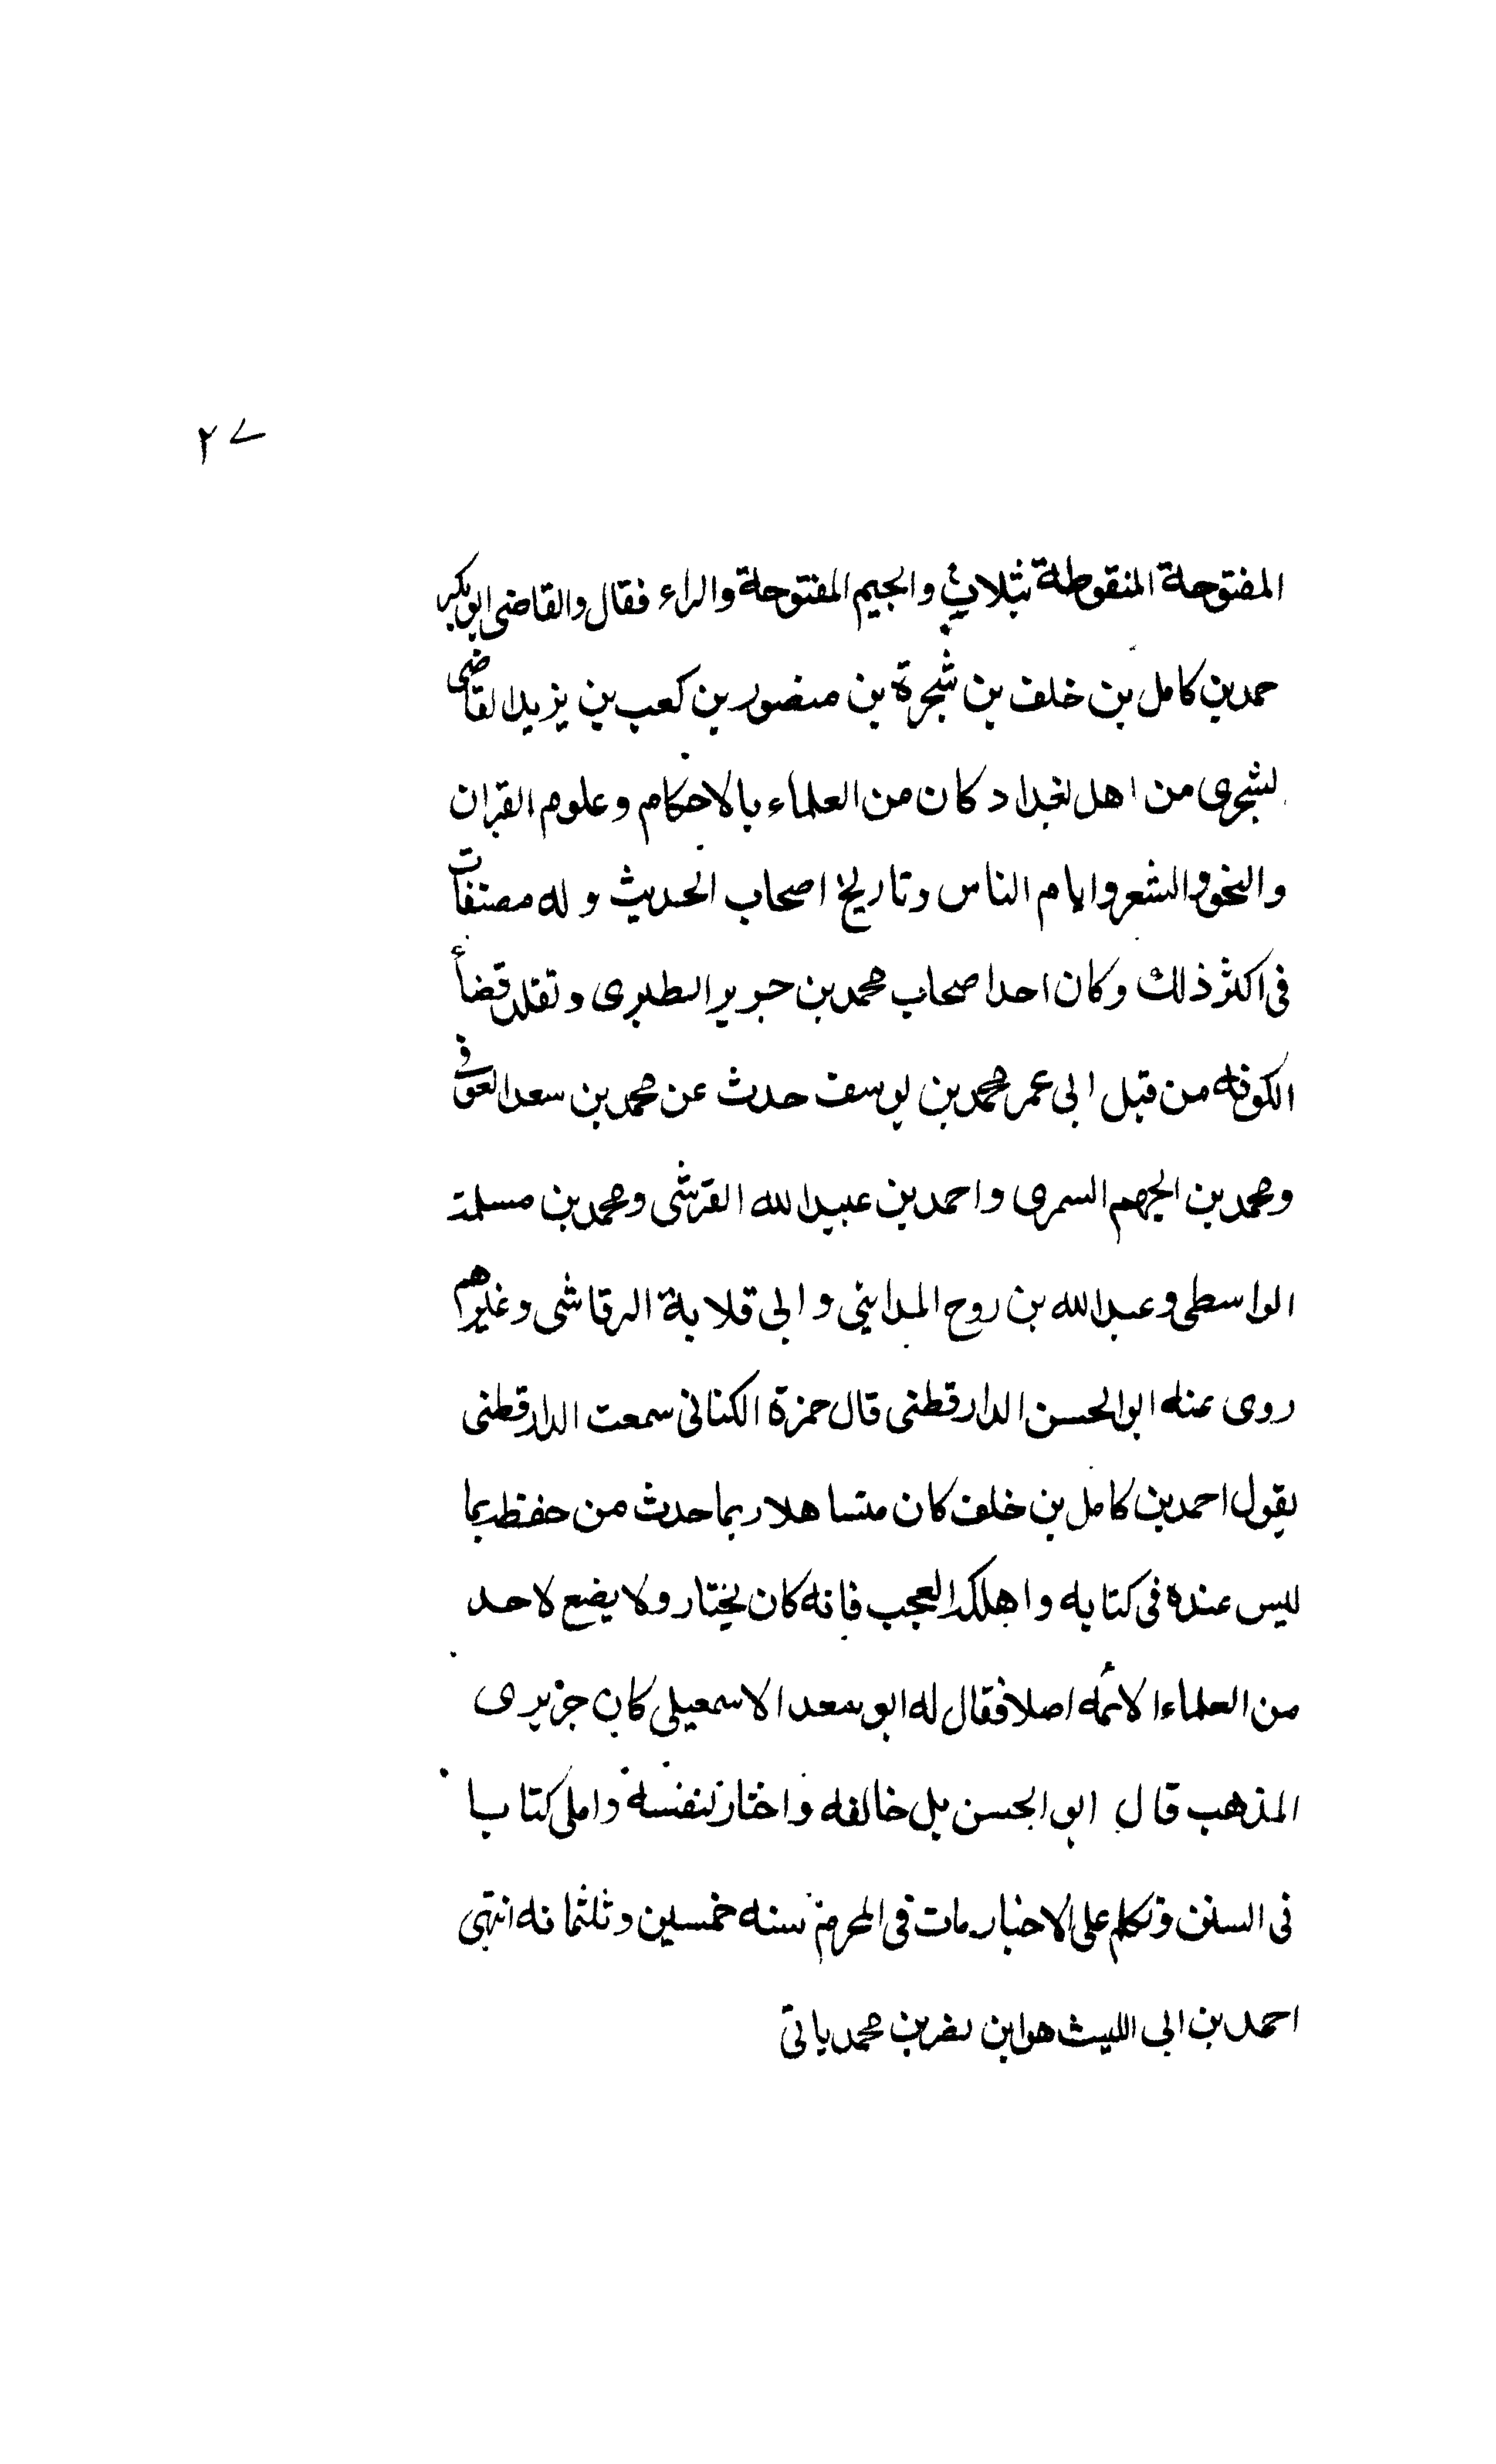 ٢٧
المفتوحة المنقوطة بثلاث والجيم المفتوحة والراء فقال والقاضى ابوبكر
حمد بن كامل بن خلف بن شجرة بن منصور بن كعب بن يزيد القاضى
لشجرى من اهل بغداد كان من العلماء بالاحكام وعلوم القران
والنحو والشعر وايام الناس وتاريخ اصحاب الحديث وله مصنفات
فى اكثر ذلك وكان احد اصحاب محمد بن جرير الطبرى وتقلد قضأ
الكوفه من قبل ابى عمر محمد بن يوسف حدث عن محمد بن سعد العوفى
ومحمد بن الجهم السمرى واحمد بن عبيد الله القرشى ومحمد بن مسلمة
الواسطى وعبد الله بن روح المداينى وابى قلابة الرقاشى وغيرهم
روى عنه ابو الحسن الدارقطنى قال حمزة الكنانى سمعت الدارقطنى
يقول احمد بن كامل بن خلف كان متساهلا ربما حدث من حفظه بما
ليس عنده فى كتابه واهلكه العجب فانه كان يختار ولا يضع لاحد
من العلماء الائمه اصلا فقال له ابو سعد الاسمعيلى كان جريرى
المذهب قال ابو الحسن بل خالفه واختار لنفسه واملى كتابا
فى السنن وتكلم على الاخبار مات فى المحرم سنه خمسين وثلثمائه انتهى
احمد بن ابى الليث هو ابن نصر بن محمد ياتى